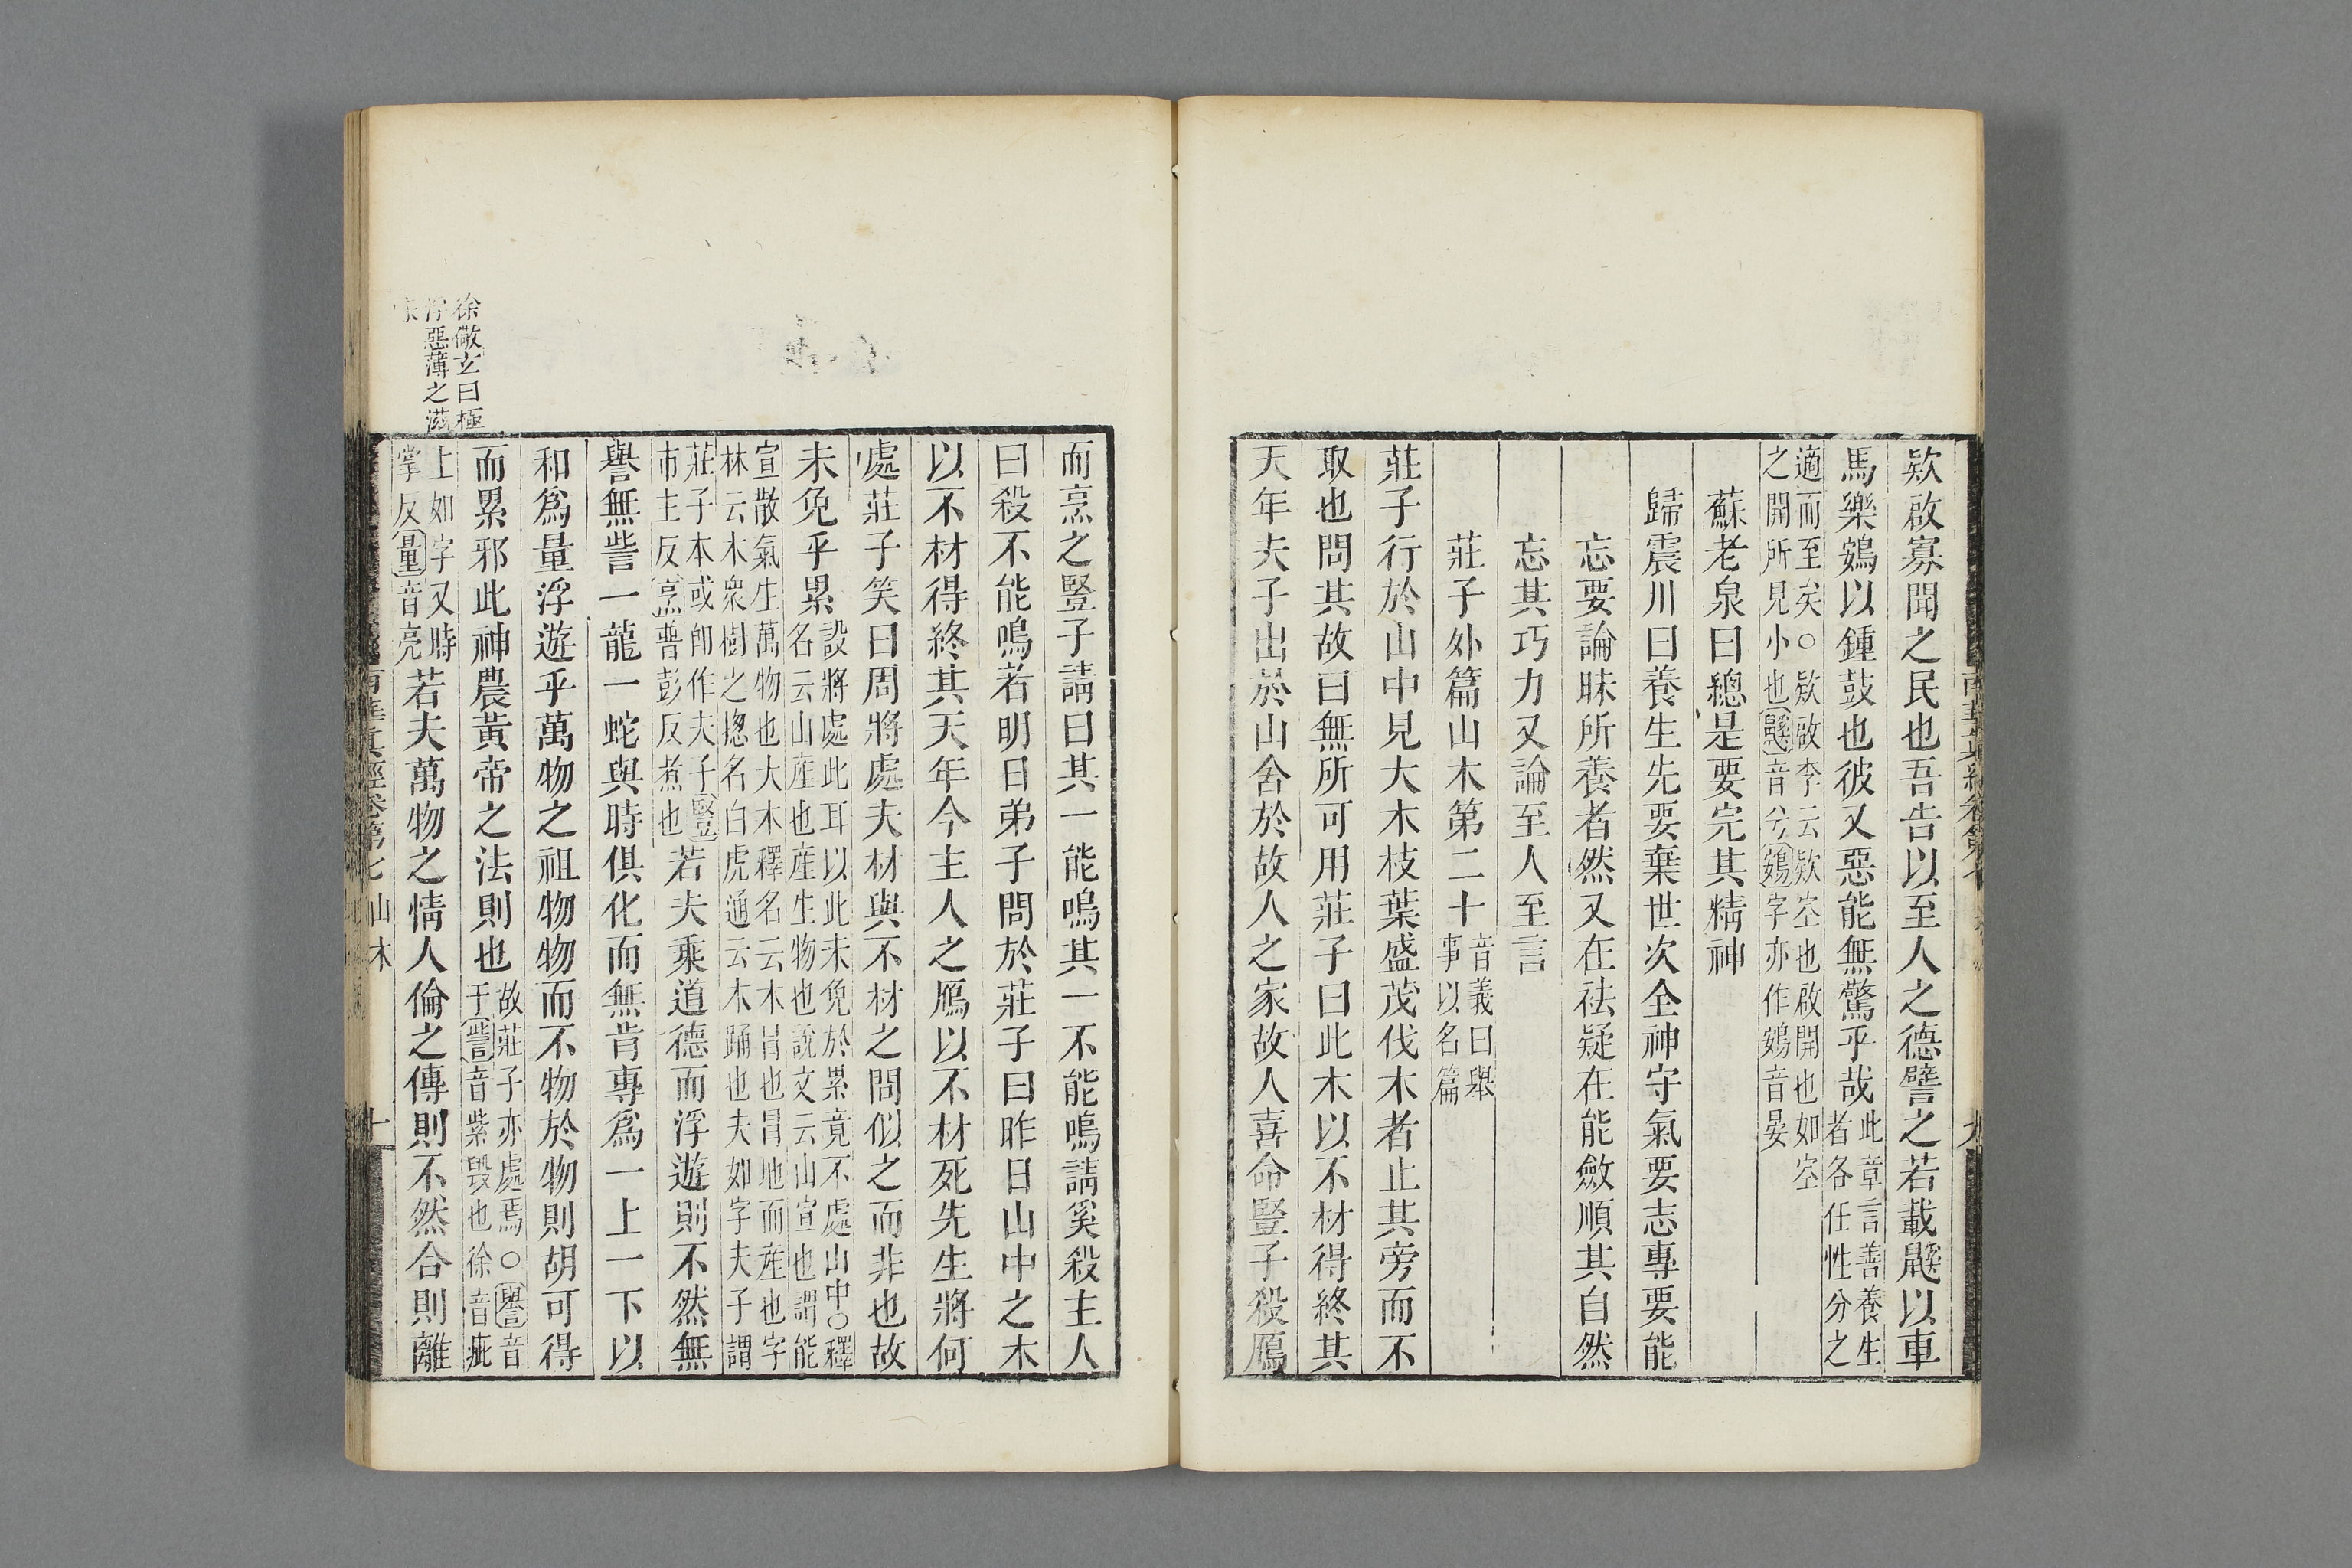 欵啟寡聞之民也吾告以至人之德譬之若載鼷以車
馬樂鴳以鍾鼓也彼又惡能無驚乎哉
此章言善養生
者各任性分之
適而至矣○欵啟李云欵空也啟開也如空
之開所見小也鼷音兮鴳字亦作鷃音晏
蘇老泉曰總是要完其精神
歸震川曰養生先要棄世次全神守氣要志專要能
忘要論昧所養者然又在祛疑在能斂順其自然
忘其巧力又論至人至言
莊子外篇山木第二十
音義曰舉
事以名篇
莊子行於山中見大木枝葉盛茂伐木者止其旁而不
取也問其故曰無所可用莊子曰此木以不材得終其
天年夫子出於山舍於故人之家故人喜命豎子殺鴈
而烹之豎子請曰其一能鳴其一不能鳴請奚殺主人
曰殺不能鳴者明日弟子問於莊子曰昨日山中之木
以不材得終其天年今主人之鴈以不材死先生將何
處莊子笑曰周將處夫材與不材之間似之而非也故
未免乎累
設將處此耳以此未免於累竟不處山中○釋
名云山産也産生物也說文云山宣也謂能
宣散氣生萬物也大木釋名云木冒也冒地而産也字
林云木衆樹之揔名白虎通云木踊也夫如字夫子謂
莊子本或卽作夫子豎
市主反烹普彭反煮也
若夫乘道德而浮遊則不然無
譽無訾一龍一蛇與時俱化而無肯專爲一上一下以
和爲量浮遊乎萬物之祖物物而不物於物則胡可得
而累邪此神農黃帝之法則也
故莊子亦處焉○譽音
于訾音紫毁也徐音疵
上如字又時
掌反量音亮
若夫萬物之情人倫之傳則不然合則離
徐儆玄曰極
浮惡薄之滋
味
南華眞經卷第七 山木 十